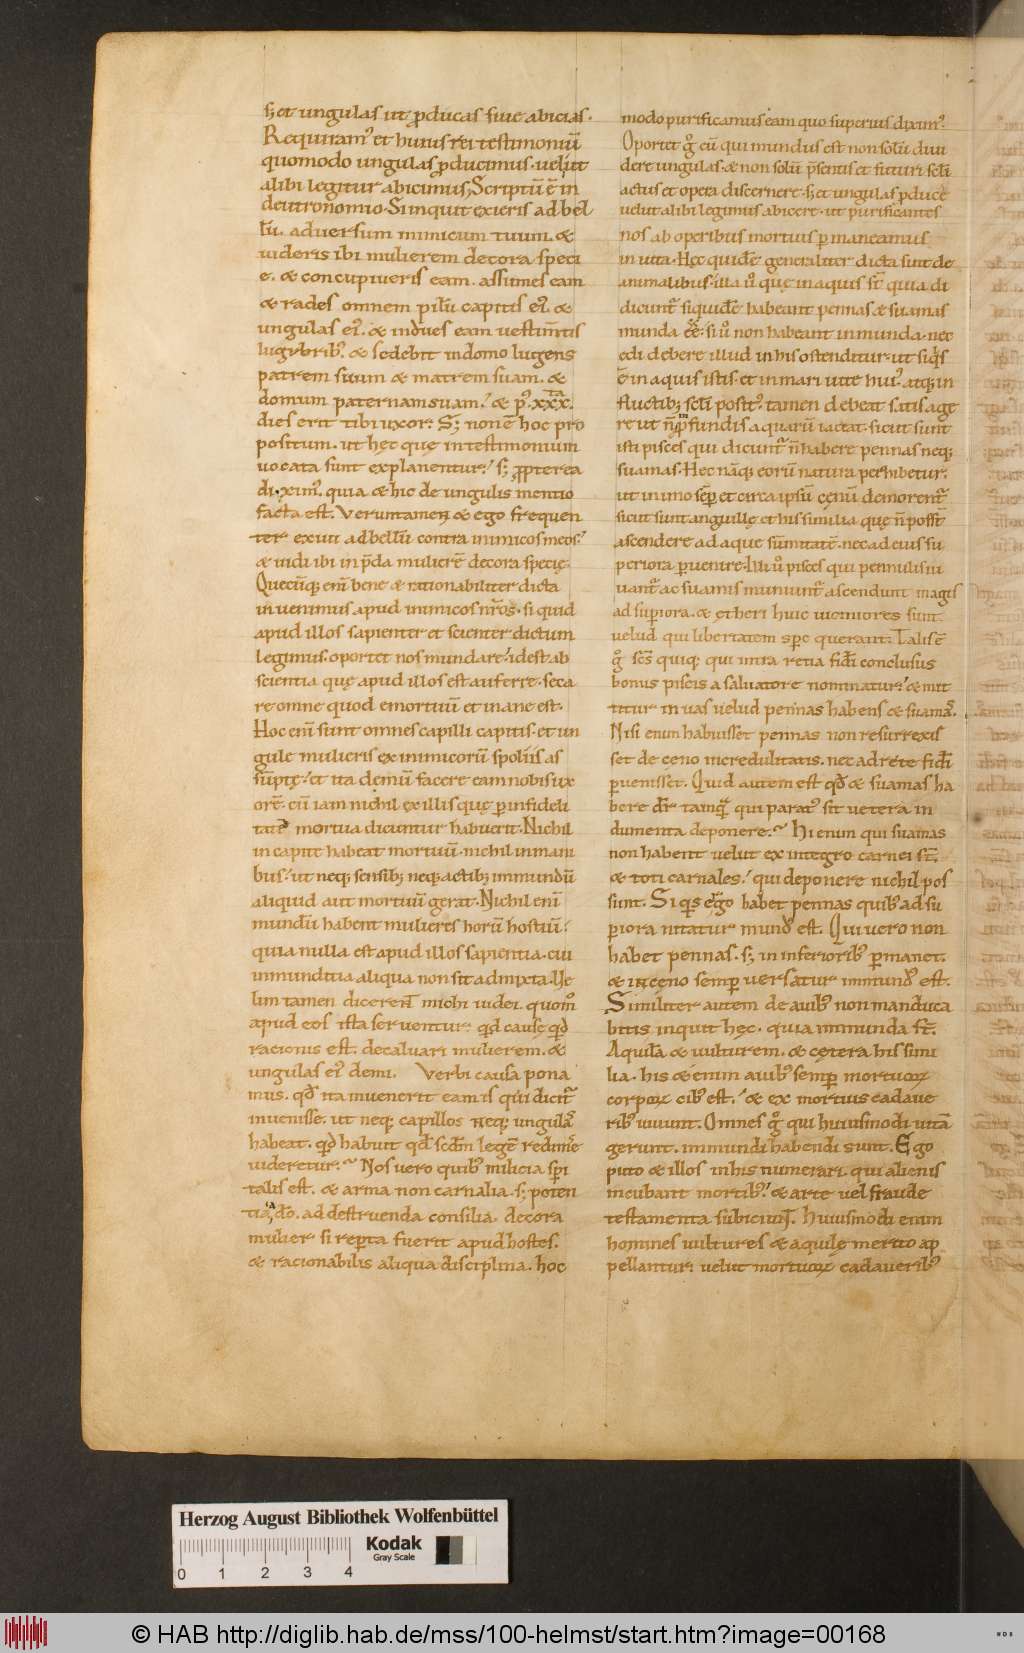 s; et ungulas ut p̄ducas siue abicias.
Requiram᾽ et huius rei testimoniū
quomodo ungulas p̄ducimus. uel ut
alibi legitur abicimus; Scriptū ē in
deutronomio. Si inquit exieris ad bel
lū. aduersum inimicum tuum. &
uideris ibi mulierem decora speci
e. & concupiueris eam. assumes eam
& rades omnem pilū capitis ei᾽. &
ungulas ei᾽. & indues eam uestim̄tis
lugubrib᾽. & sedebit in domo lugens
patrem suum & matrem suam. &
domum paternam suam. & p᾽ xxx.
dies erit tibi uxor. S; non ē hoc pro
positum. ut hęc quę in testimonium
uocata sunt explanentur. s; p̄pterea
dixim᾽. quia & hic de ungulis mentio
facta est. Veruntamen & ego frequen
ter exiui ad bellū contra inimicos meos.
& uidi ibi in p̄da mulierē decora specię.
Quecūq; eni bene & rationabiliter dicta
inuenimus apud inimicos nr̄os. si quid
apud illos sapienter et scienter dictum
legimus. oportet nos mundare. idest ab
scientia quę apud illos est auferre. seca
re omne quod emortuū et inane est.
Hoc eni sunt omnes capilli capitis. et un
gulę mulieris ex inimicorū spoliis as
sūptę. et ita demū facere eam nobis ux
orē. cū iam nichil ex illis quę p infideli
tatē mortua dicuntur habuerit. Nichil
in capite habeat mortuū. nichil in mani
bus. ut neq; sensib; neq; actib; inmundū
aliquid aut mortuū gerat. Nichil eni
mundū habent mulieres horū hostiū.
quia nulla est apud illos sapientia. cui
inmunditia aliqua non sit admixta. Ue
lim tamen dicerent michi iudei. quom̊
apud eos ista seruentur. qd causę qd
racionis est. decaluari mulierem. &
ungulas ei᾽ demi. Verbi causa pona
mus. qd ita inuenerit eam is qui dicit᾽
inuenisse. ut neq; capillos neq; ungulas
habeat. qd habuit qd scdm legē redimere
uideretur. Nos uero quib᾽ milicia spi
talis est. & arma non carnalia. s; poten
tia a dō. ad destruenda consilia. decora
mulier si reperta fuerit apud hostes.
& racionabilis aliqua disciplina. hoc
modo purificamus eam quo superius dixim᾽.
Oportet g̊ eū qui mundus est non solū diui
dere ungulas. & non solū p̄sentis et futuri scli
actus et opera discernere. s; et ungulas p̄ducere
uelut alibi legimus abicere. ut purificantes
nos ab operibus mortuis p maneamus
in uita. Hęc quidē generaliter dicta sunt de
animalibus. illa u᾽ quę in aquis st̄ quia di
dicunt᾽ siquidē habeant pennas & suamas
munda ēē. si u᾽ non habeant inmunda. nec
edi debere illud in his ostenditur. ut siq's
ē in aquis istis. et in mari uite hui᾽. atq; in
fluctib; scli posit᾽. tamen debeat satis age
re ut n̄ in p̄fundis aquarū iaceat. sicut sunt
isti pisces qui dicunt᾽ n̄ habere pennas neq;
suamas. Hęc nāq; eorū natura perhibetur.
ut in imo semp et circa ipsū cęnū demorent᾽
sicut sunt anguillę et his similia quę n̄ posst̄
ascendere ad aque sūmitatē. nec ad eius su
periora puenire. Illi u᾽ pisces qui pennulis iu
uant᾽ ac suamis muniunt᾽ ascendunt magis
ad supiora. & ętheri huic uiciniores sunt
uelud qui libertatem sp̄c querant. Talis ē
g̊ sc̄s quiq; qui intra retia fidei conclusus
bonus piscis a saluatore nominatur. & mit
titur in uas uelud pennas habens & suamas.
Nisi enim habuisset pennas non resurrexis
set de ceno incredulitatis. nec ad rete fidei
puenisset. Quid autem est qd & suamas ha
bere dr̄ tamq̄ qui parat᾽ sit uetera in
dumenta deponere. Hi enim qui suamas
non habent uelut ex integro carnei st̄.
& toti carnales. qui deponere nichil pos
sunt. Si q's ergo habet pennas quib᾽ ad su
piora nitatur mund᾽ est. Qui uero non
habet pennas. s; in inferiorib᾽ pmanet.
& in cęno semp uersatur inmund᾽ est.
Similiter autem de auib᾽ non manduca
bitis inquit hęc. quia inmunda st̄.
Aquila & uulturem. & cętera his simi
lia. his & enim auib᾽ semp mortuoꝝ
corpoꝝ cib᾽ est. & ex mortuis cadaue
rib᾽ uiuunt. Omnes g̊ qui huiusmodi uitā
gerunt. inmundi habendi sunt. Ego
puto & illos in his numerari. qui alienis
incubant mortib᾽. & arte uel fraude
testamenta subiciunt. Huiusmodi enim
homines uultures & aquilę merito ap
pellantur. uelut mortuoꝝ cadauerib᾽
Herzog August Bibliothek Wolfenbüttel
Kodak
Gray Scale
0 1 2 3 4
© HAB http://diglib.hab.de/mss/100-helmst/start.htm?image=00168